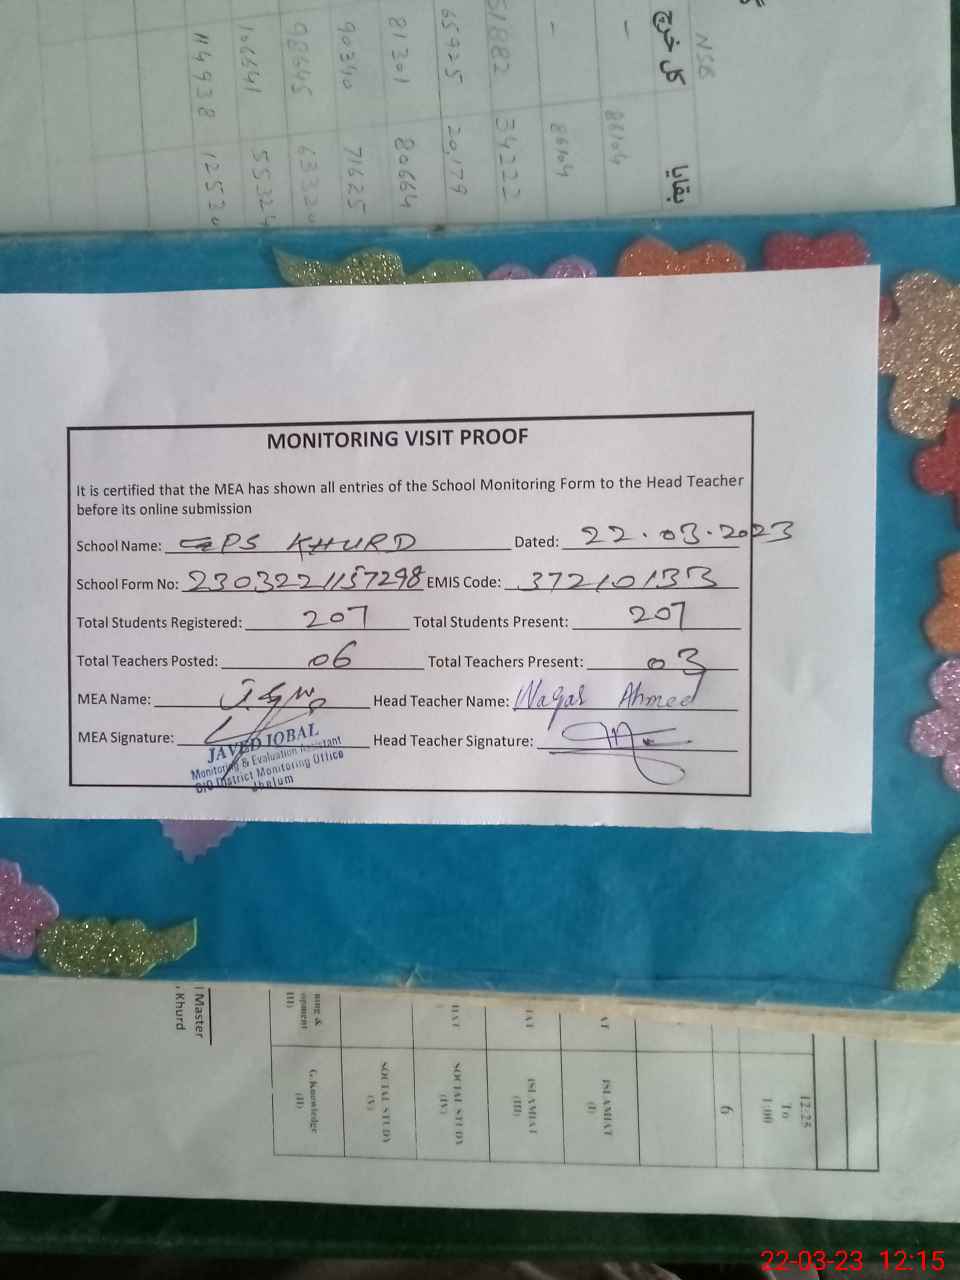 NSB
کل خرچ
بقایا
-
86104
-
86104
51882
34222
65925
20,179
81201
80664
90340
71625
98645
106641
114938
MONITORING VISIT PROOF
It is certified that the MEA has shown all entries of the School Monitoring Form to the Head Teacher
before its online submission
School Name: GPS KHURD Dated: 22.03.2023
School Form No: 2303221157298 EMIS Code: 37210133
Total Students Registered: 207 Total Students Present: 207
Total Teachers Posted: 06 Total Teachers Present: 03
MEA Name: Head Teacher Name: Waqas Ahmed
MEA Signature: Head Teacher Signature:
JAVED IQBAL
Monitoring & Evaluation Assistant
O/O District Monitoring Office
Jhelum
Master
Khurd
G. Knowledge
(II)
SOCIAL STUDY
(V)
SOCIAL STUDY
(IV)
ISLAMIAT
(III)
ISLAMIAT
(I)
6
12:25
To
1:00
22-03-23 12:15